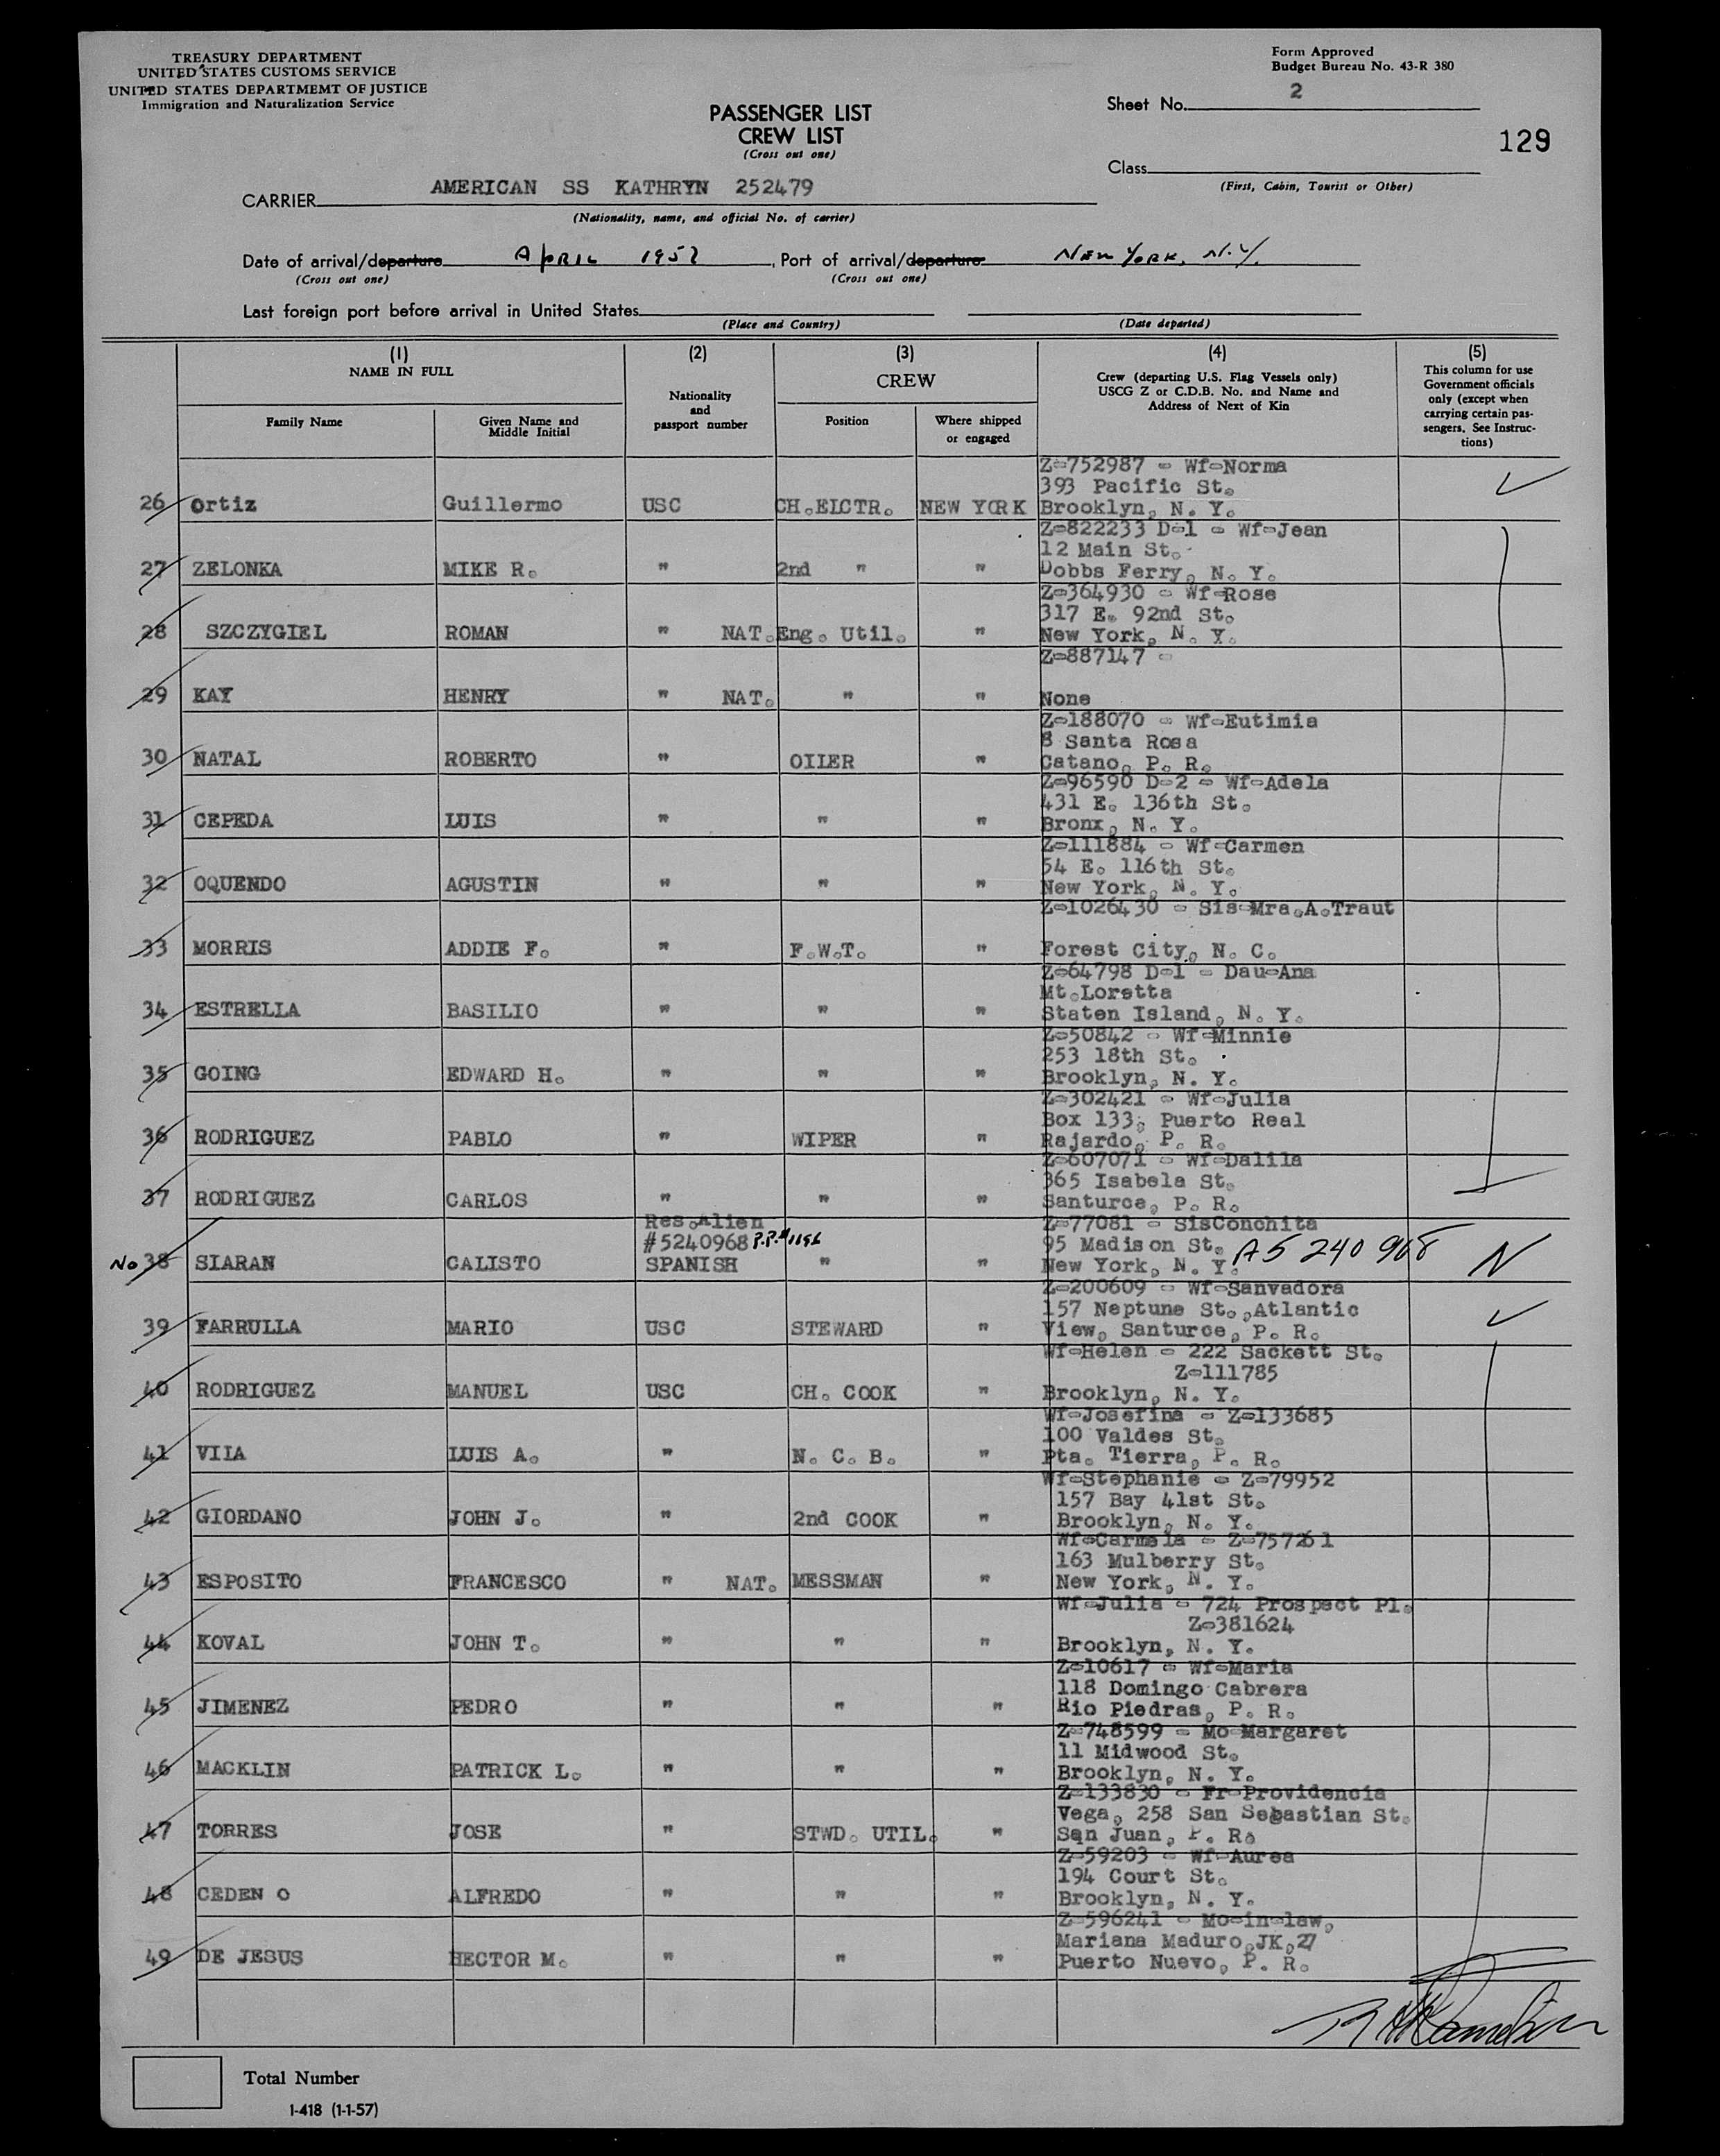 TREASURY DEPARTMENT
UNITED STATES CUSTOMS SERVICE
UNITED STATES DEPARTMEMT OF JUSTICE
Immigration and Naturalization Service
Form Approved
Budget Bureau No. 43-R 380
Sheet No. 2
129
PASSENGER LIST
CREW LIST
(Cross out one)
Class
(First, Cabin, Tourist or Other)
CARRIER AMERICAN SS KATHRYN 252479
(Nationality, name, and official No. of carrier)
Date of arrival/departure APRIL 1957, Port of arrival/departure NEW YORK, N.Y.
(Cross out one) (Cross out one)
Last foreign port before arrival in United States
(Place and Country) (Date departed)
(1) (2) (3) (4) (5)
NAME IN FULL
Family Name
Given Name and
Middle Initial
Nationality
and
passport number
CREW
Position
Where shipped
or engaged
Crew (departing U.S. Flag Vessels only)
USCG Z or C.D.B. No. and Name and
Address of Next of Kin
This column for use
Government officials
only (except when
carrying certain pas-
sengers. See Instruc-
tions)
Z-752987 - Wf-Norma
393 Pacific St.
26 Ortiz Guillermo USC CH.ELCTR. NEW YORK Brooklyn, N. Y.
Z-822233 D-1 - Wf-Jean
12 Main St.
27 ZELONKA MIKE R. " 2nd " " Dobbs Ferry, N. Y.
Z-364930 - Wf-Rose
317 E. 92nd St.
28 SZCZYGIEL ROMAN " NAT. Eng. Util. " New York, N. Y.
Z-887147 -
29 KAY HENRY " NAT. " " None
Z-188070 - Wf-Eutimia
8 Santa Rosa
30 NATAL ROBERTO " OILER " Catano, P. R.
Z-96590 D-2 - Wf-Adela
431 E. 136th St.
31 CEPEDA LUIS " " " Bronx, N. Y.
Z-111884 - Wf-Carmen
54 E. 116th St.
32 OQUENDO AGUSTIN " " " New York, N. Y.
Z-1026430 - Sis-Mra.A.Traut
33 MORRIS ADDIE F. " F.W.T. " Forest City, N. C.
Z-64798 D-1 - Dau-Ana
Mt.Loretta
34 ESTRELLA BASILIO " " " Staten Island, N. Y.
Z-50842 - Wf-Minnie
253 18th St.
35 GOING EDWARD H. " " " Brooklyn, N. Y.
Z-302421 - Wf-Julia
Box 133, Puerto Real
36 RODRIGUEZ PABLO " WIPER " Rajardo, P. R.
Z-607071 - Wf-Dalila
365 Isabela St.
37 RODRIGUEZ CARLOS " " " Santurce, P. R.
Res.Alien Z-77081 - SisConchita
#5240968 P.P.#1196 95 Madison St. A5 240 968
No 38 SIARAN CALISTO SPANISH " " New York, N. Y. N
Z-200609 - Wf-Sanvadora
157 Neptune St.,Atlantic
39 FARRULLA MARIO USC STEWARD " View, Santurce, P. R.
Wf-Helen - 222 Sackett St.
Z-111785
40 RODRIGUEZ MANUEL USC CH. COOK " Brooklyn, N. Y.
Wf-Josefina - Z-133685
100 Valdes St.
41 VILA LUIS A. " N. C. B. " Pta. Tierra, P. R.
Wf-Stephanie - Z-79952
157 Bay 41st St.
42 GIORDANO JOHN J. " 2nd COOK " Brooklyn, N. Y.
Wf-Carmela - Z-757261
163 Mulberry St.
43 ESPOSITO FRANCESCO " NAT. MESSMAN " New York, N. Y.
Wf-Julia - 724 Prospect Pl.
Z-381624
44 KOVAL JOHN T. " " " Brooklyn, N. Y.
Z-10617 - Wf-Maria
118 Domingo Cabrera
45 JIMENEZ PEDRO " " " Rio Piedras, P. R.
Z-748599 - Mo-Margaret
11 Midwood St.
46 MACKLIN PATRICK L. " " " Brooklyn, N. Y.
Z-133830 - Fr-Providencia
Vega, 258 San Sebastian St.
47 TORRES JOSE " STWD. UTIL. " San Juan, P. R.
Z-59203 - Wf-Aurea
194 Court St.
48 CEDEN O ALFREDO " " " Brooklyn, N. Y.
Z-596241 - Mo-in-law,
Mariana Maduro,JK,27
49 DE JESUS HECTOR M. " " " Puerto Nuevo, P. R.
Total Number
I-418 (1-1-57)